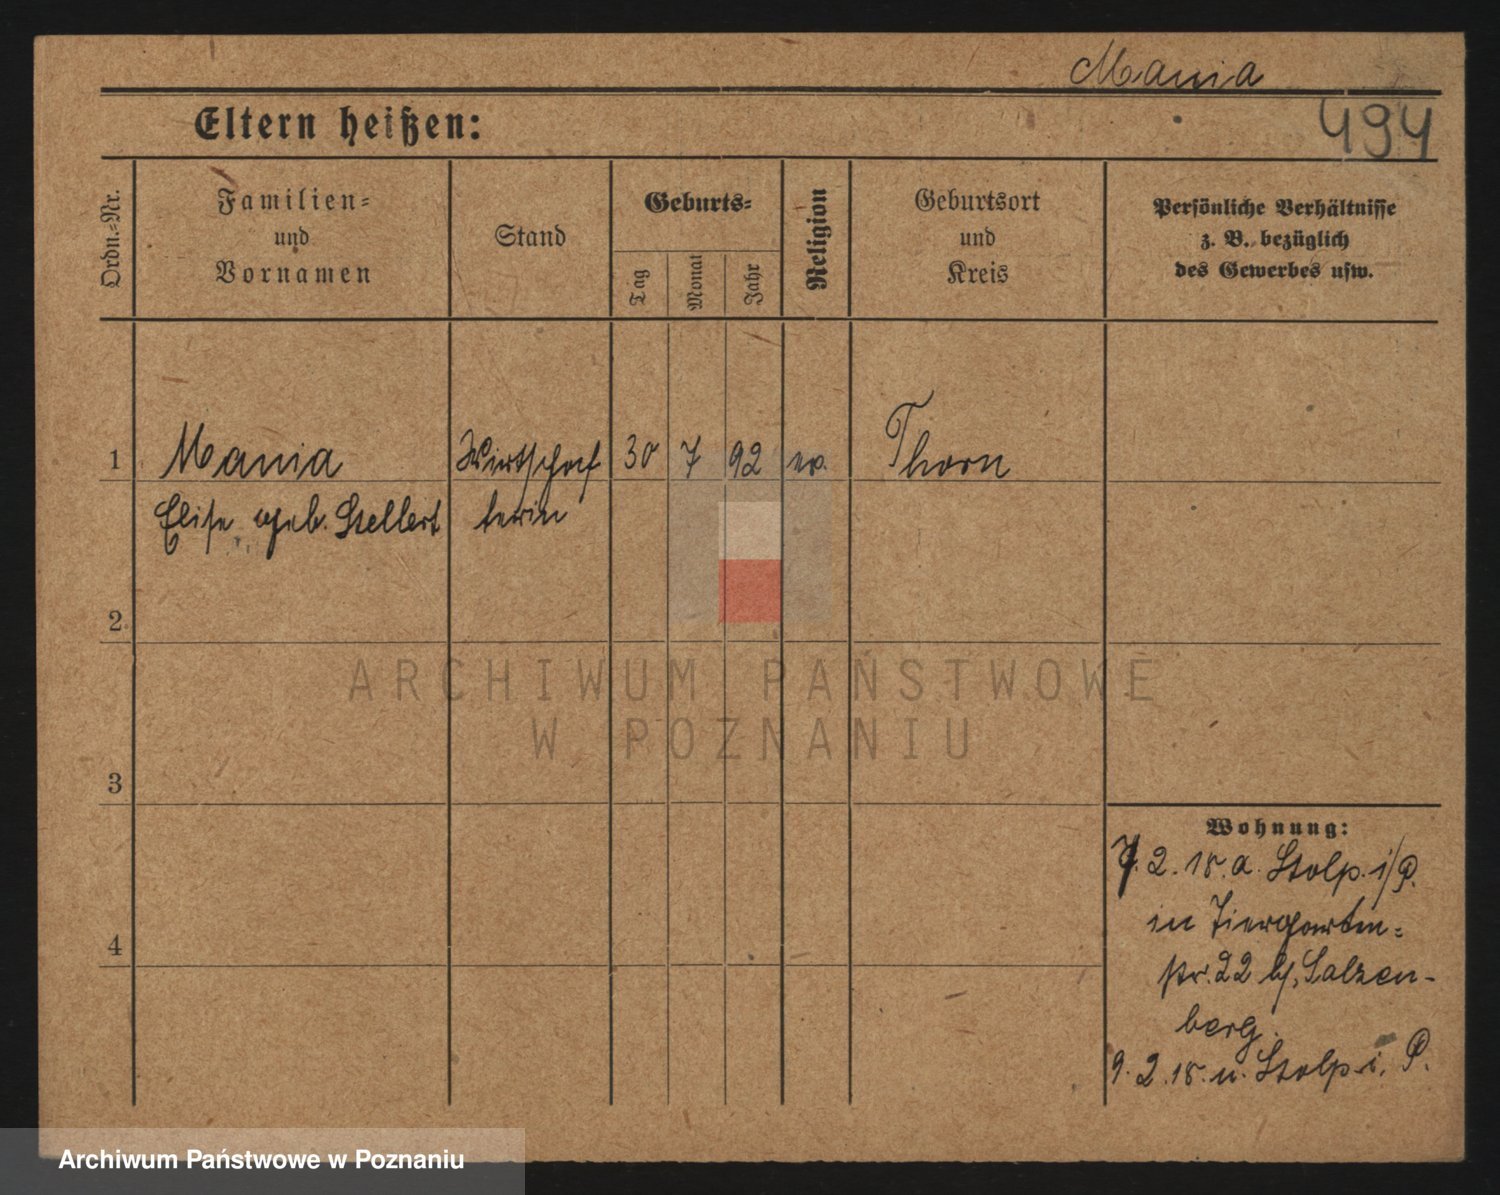 Mania
494
Eltern heißen:
Ordn.-Nr.
Familien-
und
Vornamen
Stand
Geburts-
Tag
Monat
Jahr
Religion
Geburtsort
und
Kreis
Persönliche Verhältnisse
z. B. bezüglich
des Gewerbes usw.
1
Mania
Wirtschaf
30
7
92
ev.
Thorn
Elise geb. Stellert
terin
2
ARCHIWUM PAŃSTWOWE
W POZNANIU
3
Wohnung:
7. 2. 18. a. Stolp. i/P.
in Tiergarten-
str. 22 bf. Salzen-
berg.
9. 2. 18. n. Stolp i. P.
4
Archiwum Państwowe w Poznaniu